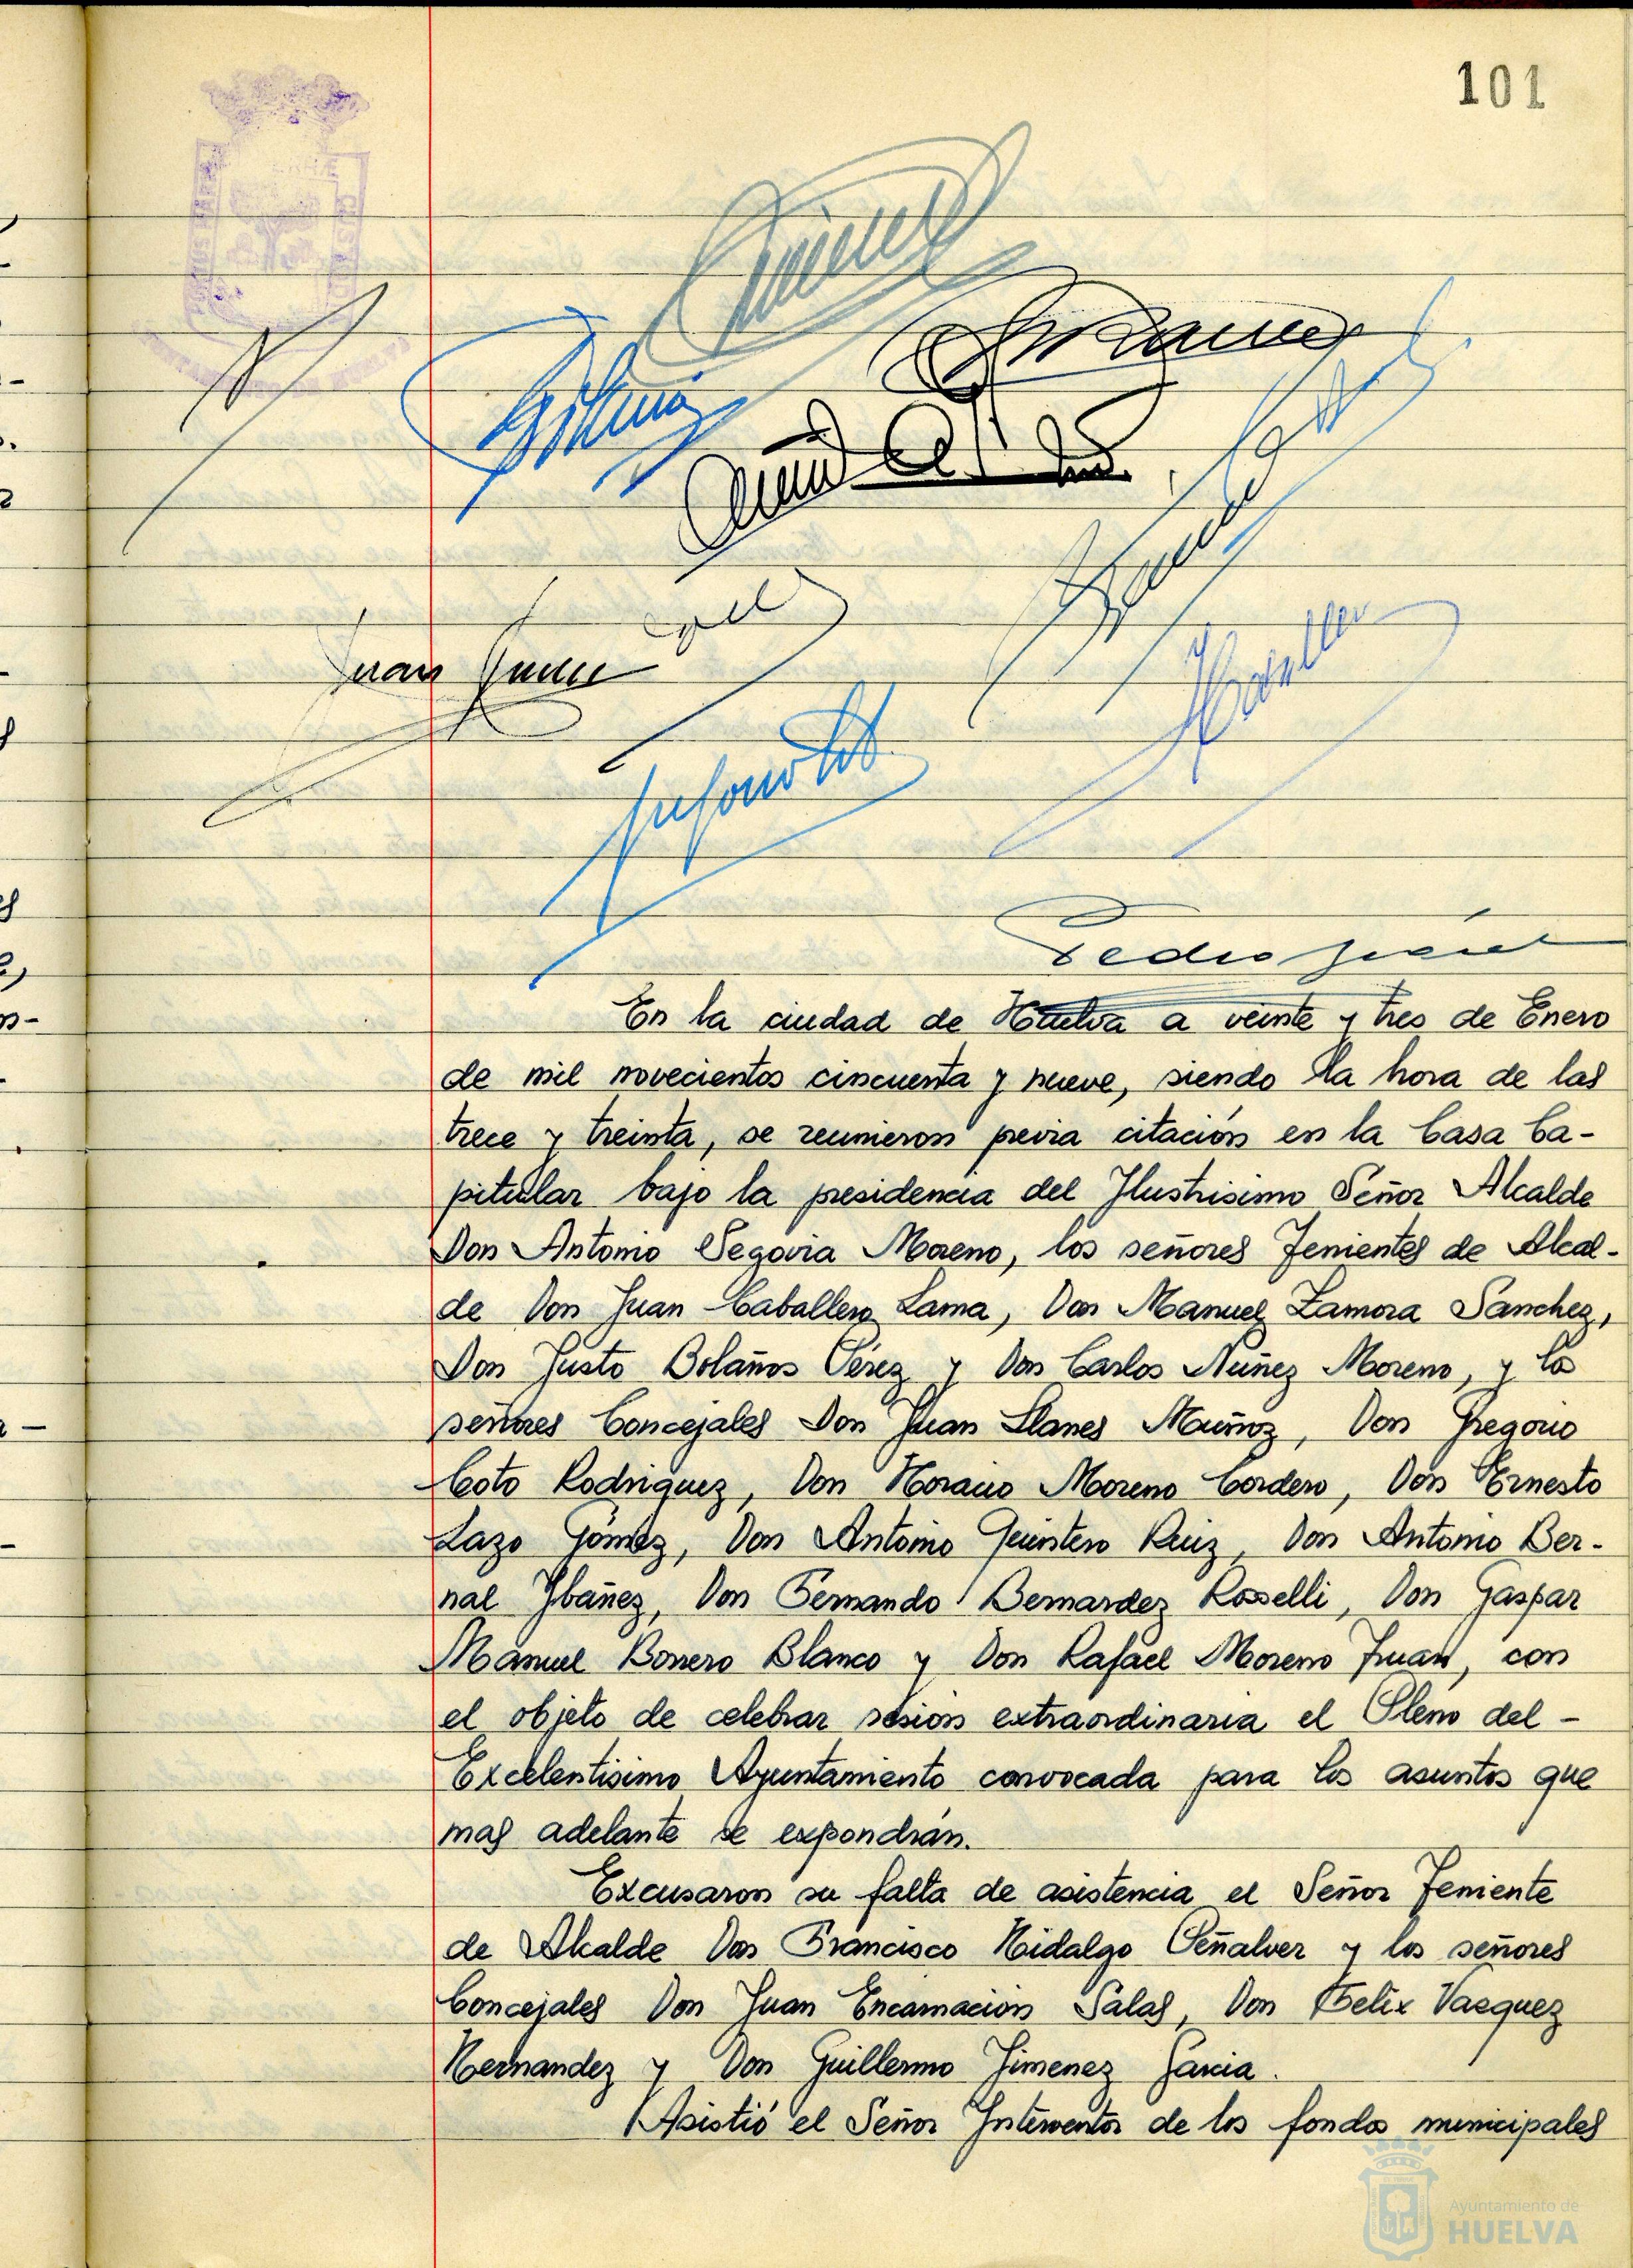 101
Juan
Pedro
En la ciudad de Huelva a veinte y tres de Enero
de mil novecientos cincuenta y nueve, siendo la hora de las
trece y treinta, se reunieron previa citación en la Casa Ca-
pitular bajo la presidencia del Ilustrisimo Señor Alcalde
Don Antonio Segovia Moreno, los señores Tenientes de Alcal-
de Don Juan Caballero Lama, Don Manuel Zamora Sanchez,
Don Justo Bolaños Pérez y Don Carlos Nuñez Moreno, y los
señores Concejales Don Juan Llanes Muñoz, Don Gregorio
Coto Rodriguez, Don Horacio Moreno Cordero, Don Ernesto
Lazo Gómez, Don Antonio Quintero Ruiz, Don Antonio Ber-
nal Ybañez, Don Fernando Bernardez Rosselli, Don Gaspar
Manuel Borrero Blanco y Don Rafael Moreno Juan, con
el objeto de celebrar sesion extraordinaria el Pleno del -
Excelentisimo Ayuntamiento convocada para los asuntos que
mas adelante se expondrán.
Excusaron su falta de asistencia el Señor Teniente
de Alcalde Don Francisco Hidalgo Peñalver y los señores
Concejales Don Juan Encarnacion Salas, Don Felix Vazquez
Hernandez y Don Guillermo Jimenez Garcia.
Asistió el Señor Interventor de los fondos municipales
Ayuntamiento de
HUELVA